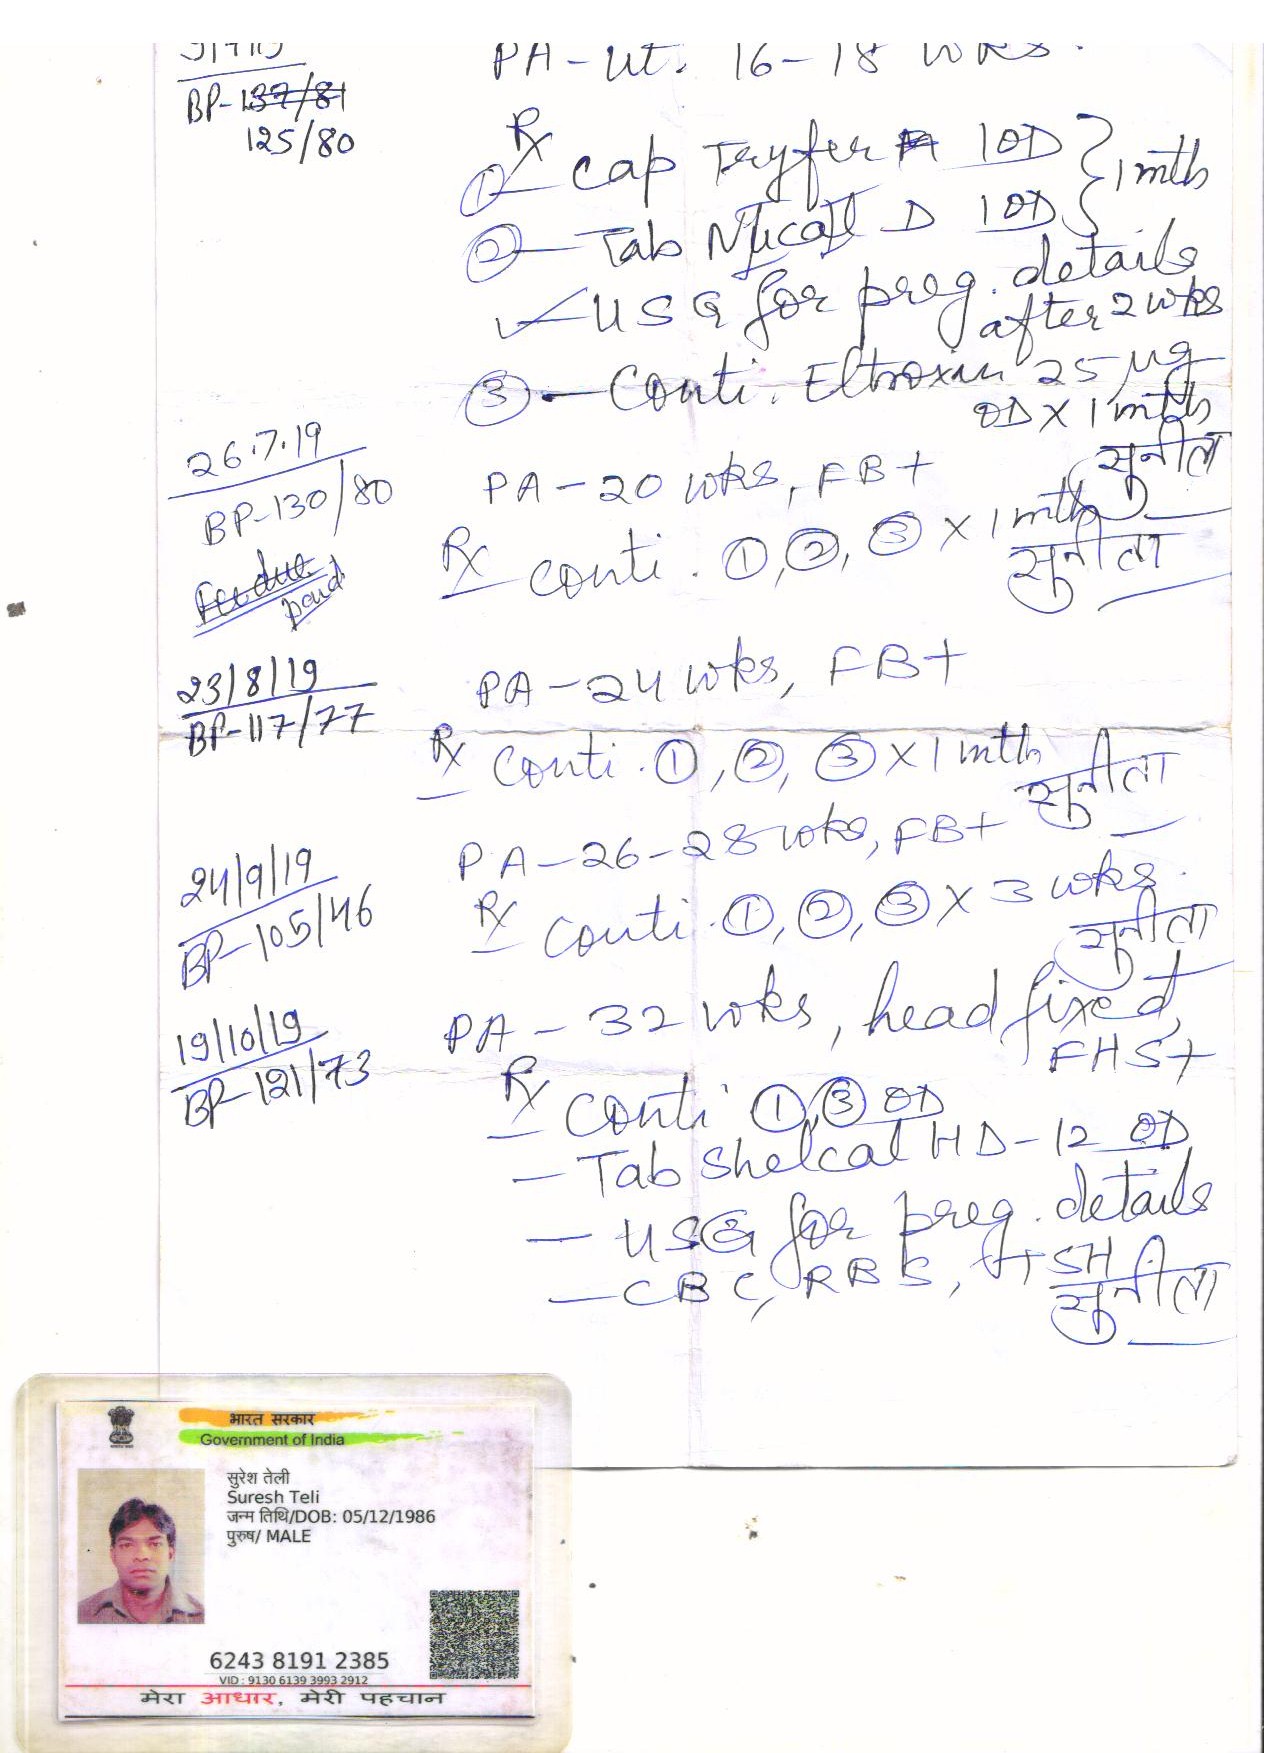 PA-Ut. 16-18 wks.
BP-137/81
125/80
Rx
① Cap Tryfer 1OD } 1mth
② Tab Nucall D 1OD
✓ USG for preg. details
after 2 wks
③ - Conti. Eltroxin 25 µg
OD X 1 mth
सुनीता
26.7.19
BP-130/80
PA-20 wks, FB+
Rx conti. ①, ②, ③ X 1 mth
सुनीता
Fee due
paid
23/8/19
BP-117/77
PA-24 wks, FB+
Rx Conti. ①, ②, ③ X 1 mth
सुनीता
24/9/19
BP-105/46
PA-26-28 wks, FB+
Rx Conti. ①, ②, ③ X 3 wks.
सुनीता
19/10/19
BP-121/73
PA-32 wks, head fixed,
FHS+
Rx Conti ①, ③ OD
- Tab Shelcal HD-12 OD
- USG for preg. details
- CBC, RBS, TSH
सुनीता
भारत सरकार
Government of India
सुरेश तेली
Suresh Teli
जन्म तिथि/DOB: 05/12/1986
पुरुष/ MALE
6243 8191 2385
VID : 9130 6139 3993 2912
मेरा आधार, मेरी पहचान